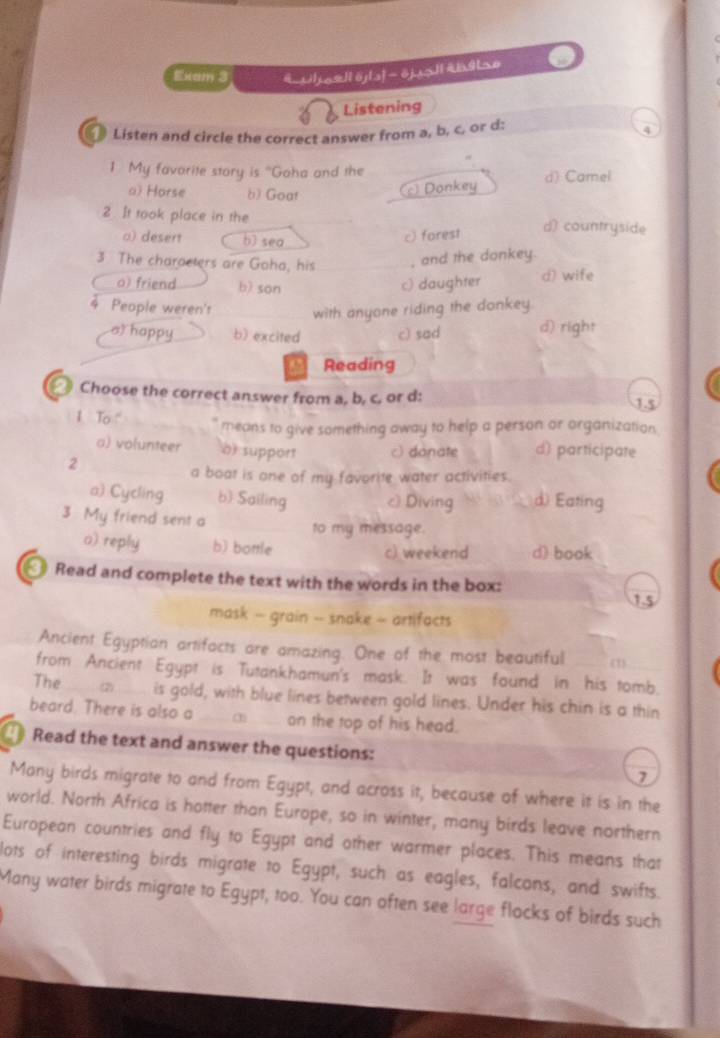 Exam 3 محافظة الجيزة – إدارة العمرانية
Listening
1 Listen and circle the correct answer from a, b, c, or d:
4
1 My favorite story is "Goha and the "
a) Horse b) Goat c) Donkey d) Camel
2 It took place in the
a) desert b) sea c) forest d) countryside
3 The characters are Goha, his , and the donkey.
a) friend b) son c) daughter d) wife
4 People weren't with anyone riding the donkey.
a) happy b) excited c) sad d) right
Reading
2 Choose the correct answer from a, b, c, or d:
1.5
1 To " " means to give something away to help a person or organization.
a) volunteer b) support c) donate d) participate
2 a boat is one of my favorite water activities.
a) Cycling b) Sailing c) Diving d) Eating
3 My friend sent a to my message.
a) reply b) bottle c) weekend d) book
3 Read and complete the text with the words in the box:
1.5
mask – grain – snake – artifacts
Ancient Egyptian artifacts are amazing. One of the most beautiful (1)
from Ancient Egypt is Tutankhamun's mask. It was found in his tomb.
The (2) is gold, with blue lines between gold lines. Under his chin is a thin
beard. There is also a (3) on the top of his head.
4 Read the text and answer the questions:
7
Many birds migrate to and from Egypt, and across it, because of where it is in the
world. North Africa is hotter than Europe, so in winter, many birds leave northern
European countries and fly to Egypt and other warmer places. This means that
lots of interesting birds migrate to Egypt, such as eagles, falcons, and swifts.
Many water birds migrate to Egypt, too. You can often see large flocks of birds such